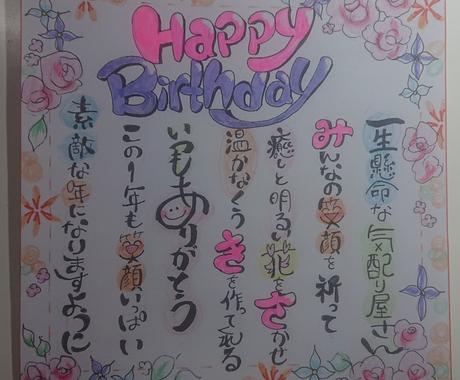 Happy
Birthday
一生懸命な気配り屋さん
みんなの笑顔を祈って
癒しと明るい花をさかせ
温かなくうきを作ってくれる
いつもありがとう
この1年も笑顔いっぱい
素敵な年になりますように